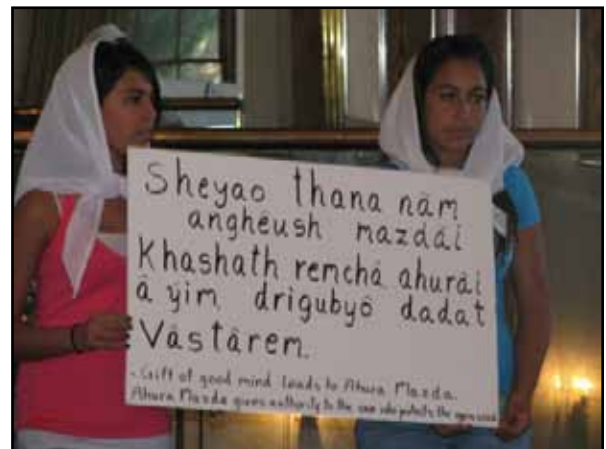 Sheyao thana nãm
angheush mazdái
Khashath remchâ ahurâi
â yim drigubyô dadat
Vâstârem.
- Gift of good mind leads to Ahura Mazda.
Ahura Mazda gives authority to the one who protects the